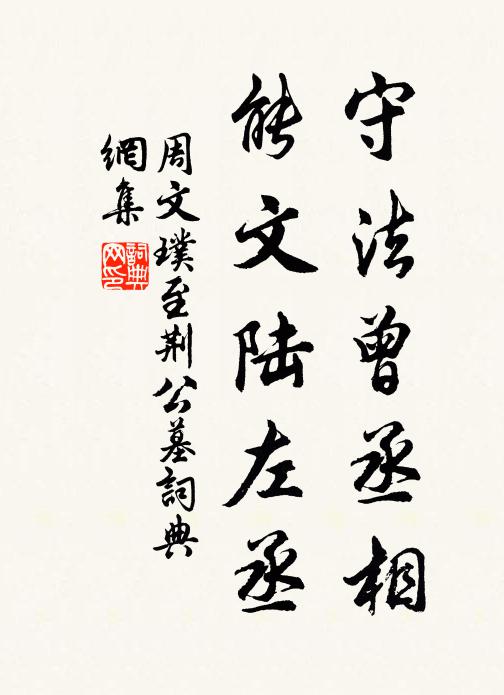 守法曾丞相
能文陆左丞
周文璞至荆公墓詞典
網集
詞典
网印